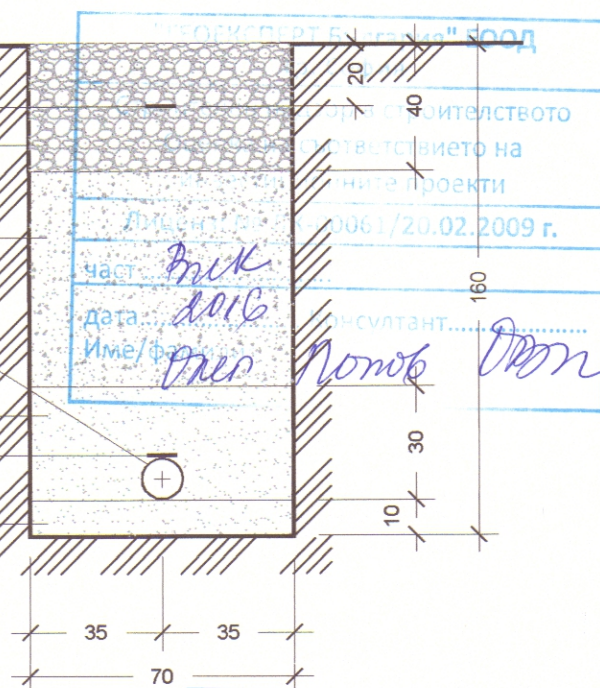 "ГЕОЕКСПЕРТ България" ЕООД
в строителството
съответствието на
проекти
00061/20.02.2009 г.
част... ВиК
дата... 2016 Консултант...
Име/фамилия Олег Попов
20
40
160
30
10
35 35
70